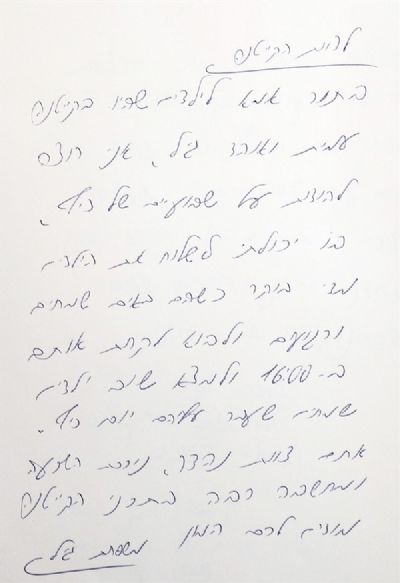 לצוות הקייטנה
בתור אמא לילדים שהיו בקייטנה
עמית ואוהד גיל, אני רוצה
להודות על שבועיים של כיף,
בו יכולתי לשלוח את הילדים
מדי בוקר כשהם באים שמחים
ורגועים ולבוא לקחת אותם
ב-16:00 ולמצא שוב ילדים
שמחים שעבר עליהם יום כיף.
אתם צוות נהדר, ניכרת השקעה
ומחשבה רבה בתכני הקייטנה
מודים לכם המון משפחת גיל